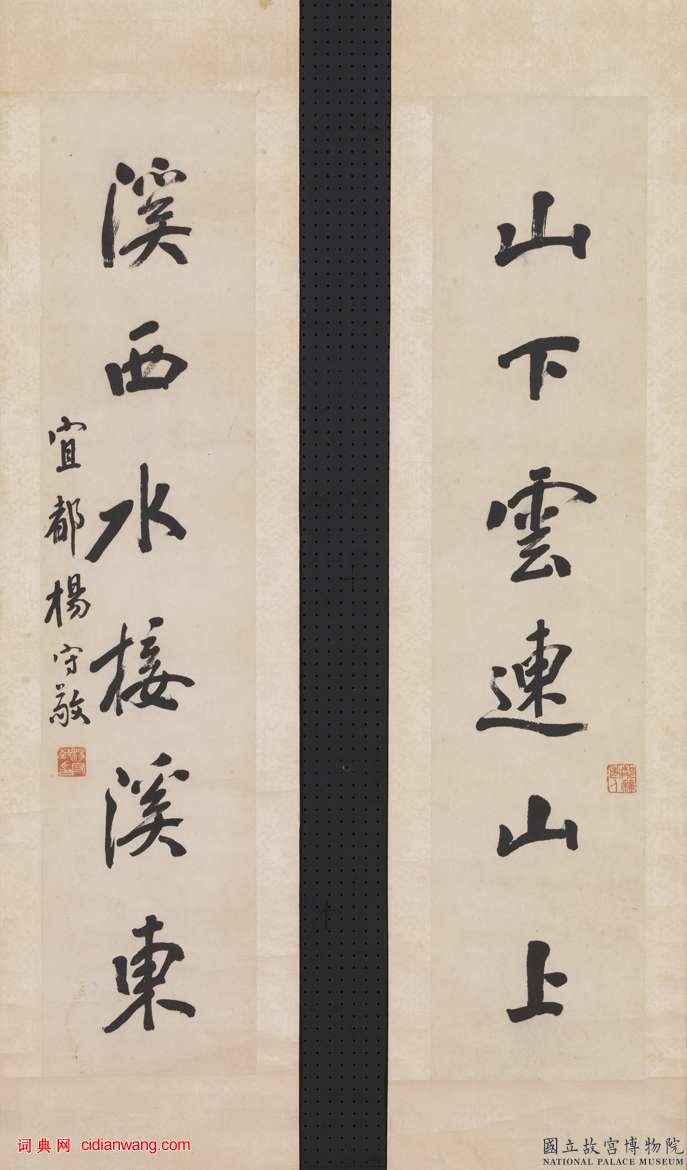 山下雲連山上
溪西水接溪東
宜都楊守敬
词典网 cidianwang.com
國立故宮博物院
NATIONAL PALACE MUSEUM